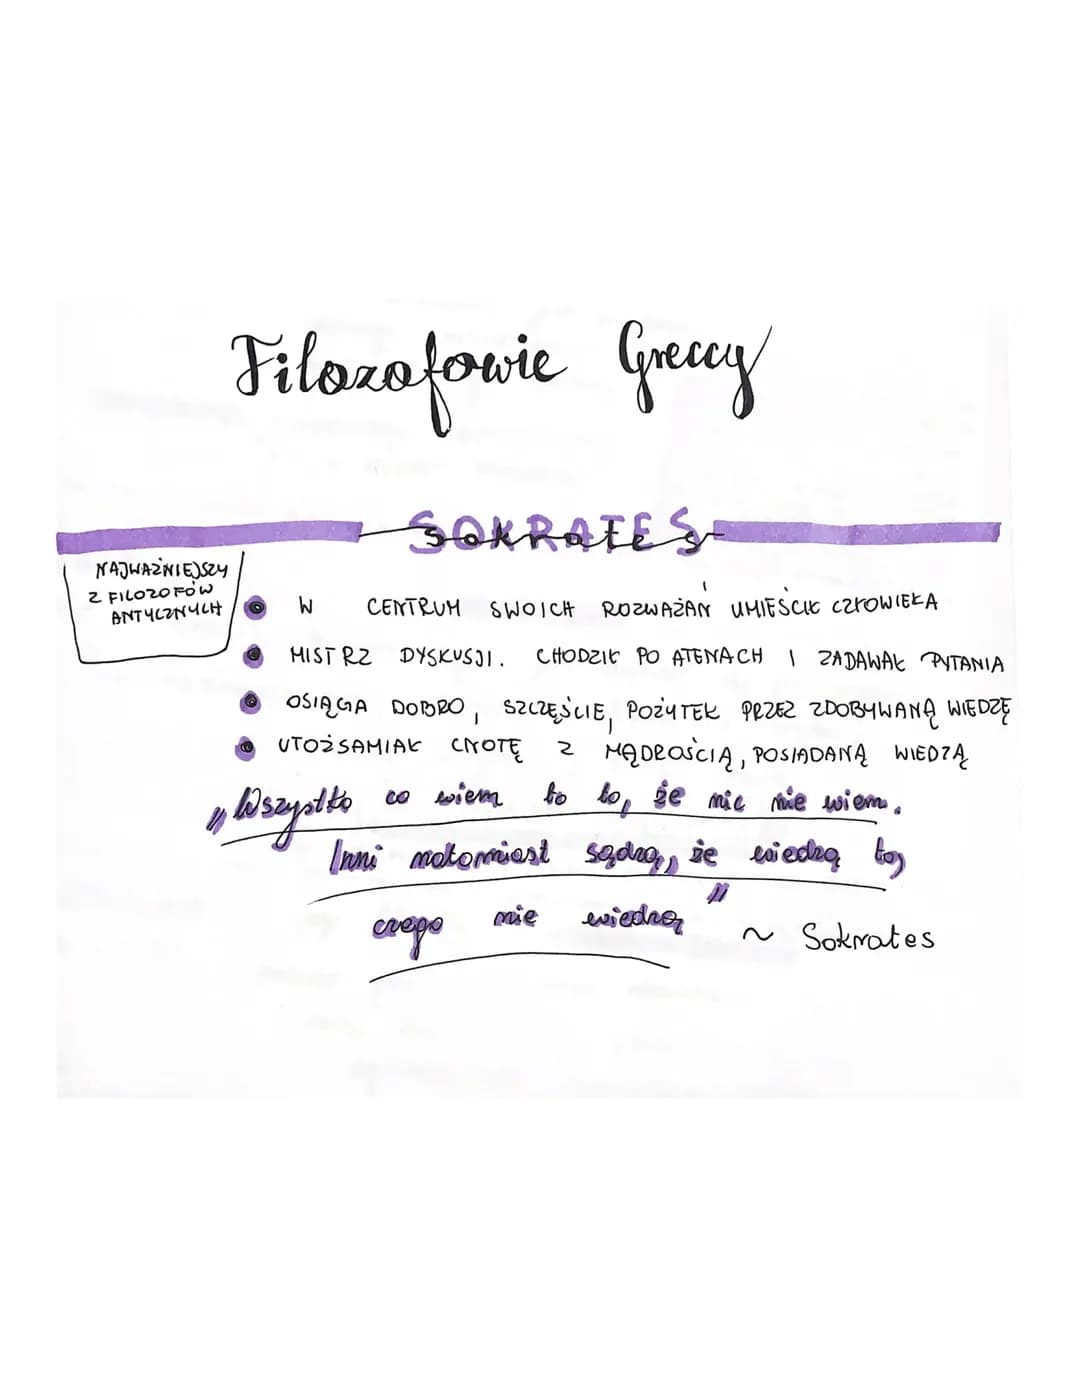 Filozofowie Greccy
SOKRATES
NAJWAŻNIEJSZY
Z FILOZOFÓW
ANTYCZNYCH
W CENTRUM SWOICH ROZWAŻAŃ UMIEŚCIŁ CZŁOWIEKA
MISTRZ DYSKUSJI. CHODZIŁ PO ATENACH I ZADAWAŁ PYTANIA
OSIĄGA DOBRO, SZCZĘŚCIE, POŻYTEK PRZEZ ZDOBYWANĄ WIEDZĘ
UTOŻSAMIAŁ CNOTĘ Z MĄDROŚCIĄ, POSIADANĄ WIEDZĄ
„Wszystko co wiem to to, że nic nie wiem.
Inni natomiast sądzą, że wiedzą to,
czego nie wiedzą” ~ Sokrates